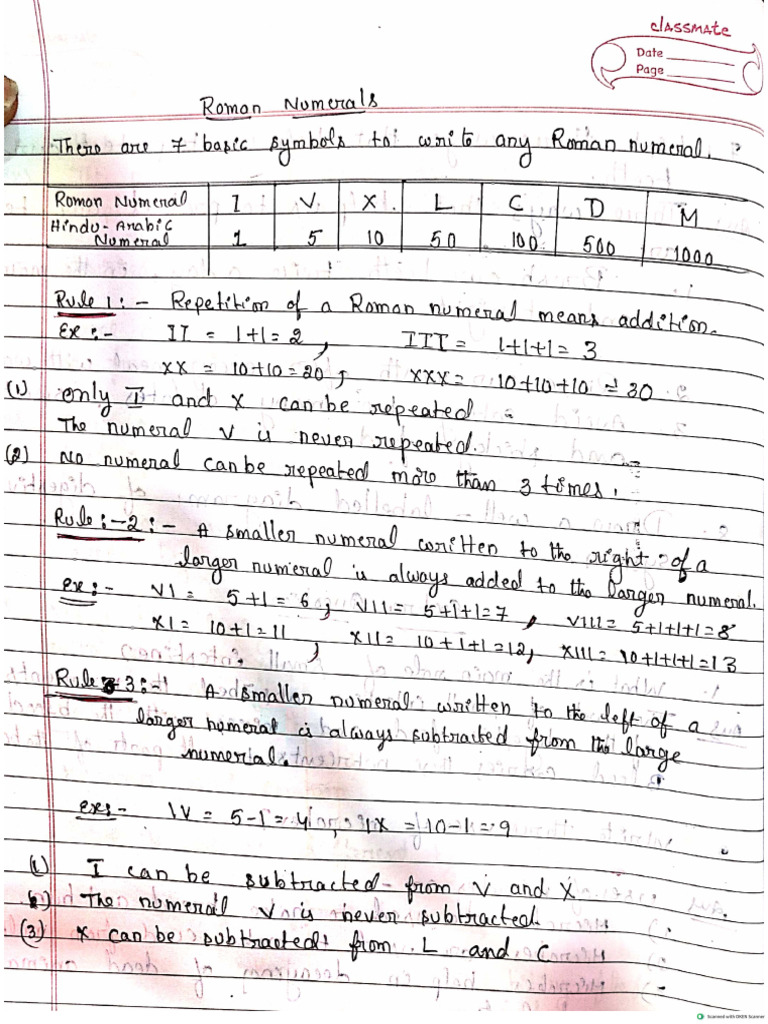 classmate
Date
Page
Roman Numerals
There are 7 basic symbols to write any Roman numeral.
Roman Numeral I V X L C D M
Hindu-Arabic Numeral 1 5 10 50 100 500 1000
Rule 1:- Repetition of a Roman numeral means addition.
Ex:- II = 1+1=2, III = 1+1+1= 3
XX = 10+10=20, XXX= 10+10+10 = 30
(1) only I and X can be repeated
The numeral V is never repeated.
(2) No numeral can be repeated more than 3 times.
Rule:-2:- A smaller numeral written to the right of a
larger numeral is always added to the larger numeral.
Ex:- VI = 5+1=6, VII= 5+1+1=7, VIII= 5+1+1+1=8
XI= 10+1=11, XII= 10+1+1=12, XIII= 10+1+1+1=13
Rule 3:- A smaller numeral written to the left of a
larger numeral is always subtracted from the large
numerial.
Exs- IV = 5-1=4, IX =10-1=9
(1) I can be subtracted from V and X
2) The numeral V is never subtracted.
(3) X can be subtracted from L and C
Scanned with OKEN Scanner